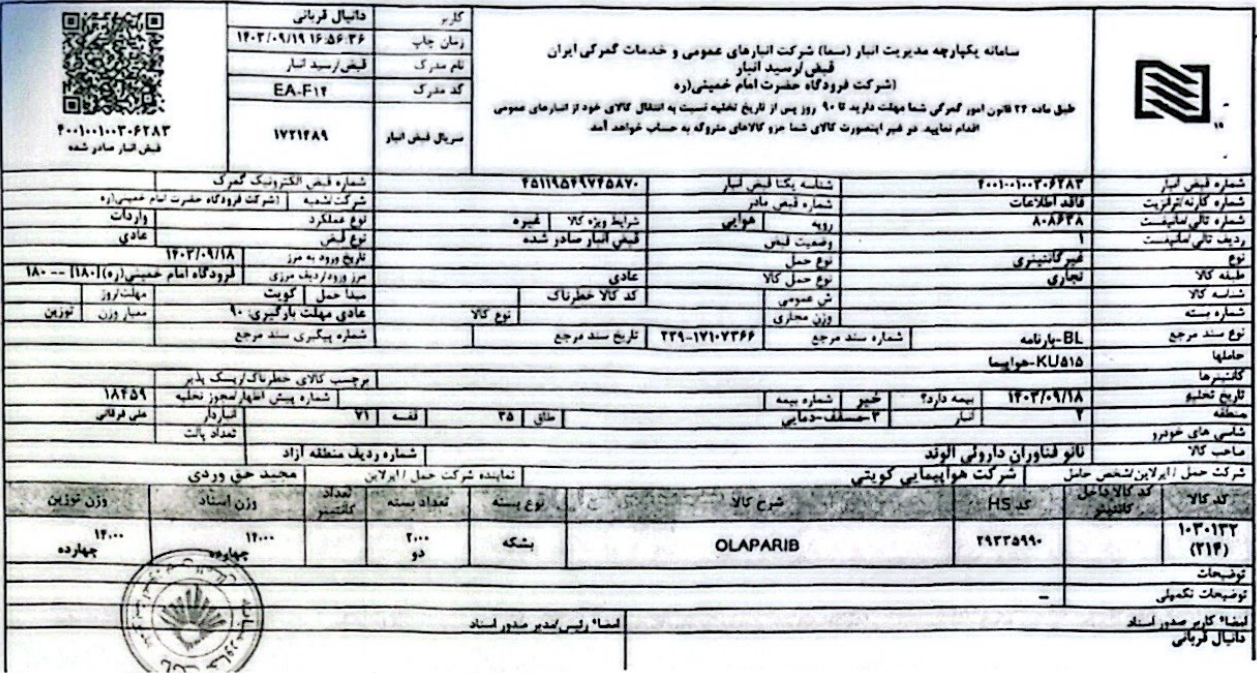 سامانه یکپارچه مدیریت انبار (سما) شرکت انبارهای عمومی و خدمات گمرکی ایران
قبض/رسید انبار
(شرکت فرودگاه حضرت امام خمینی(ره
طبق ماده ۲۴ قانون امور گمرکی شما مهلت دارید تا ۹۰ روز پس از تاریخ تخلیه نسبت به انتقال کالای خود از انبارهای عمومی
اقدام نمایید. در غیر اینصورت کالای شما جزو کالاهای متروکه به حساب خواهد آمد
کاربر دانیال قربانی
زمان چاپ ۱۴۰۳/۰۹/۱۹ ۱۶:۵۶:۳۶
نام مدرک قبض/رسید انبار
کد مدرک EA-F۱۴
سریال قبض انبار ۱۷۲۱۴۸۹
۴۰۰۱۰۰۱۰۰۳۰۶۲۸۳
قبض انبار صادر شده
شماره قبض انبار ۴۰۰۱۰۰۱۰۰۳۰۶۲۸۳ شناسه یکتا قبض انبار ۴۵۱۱۹۵۴۹۷۴۵۸۷۰ شماره قبض الکترونیک گمرک
شماره کارنه/ترانزیت فاقد اطلاعات شماره قبض مادر شرکت/شعبه (شرکت فرودگاه حضرت امام خمینی(ره
شماره تالی/مانیفست ۸۰۸۶۳۸ رویه هوایی شرایط ویژه کالا غیره نوع عملکرد واردات
ردیف تالی/مانیفست ۱ وضعیت قبض قبض انبار صادر شده نوع قبض عادی
نوع غیرکانتینری نوع حمل تاریخ ورود به مرز ۱۴۰۳/۰۹/۱۸
طبقه کالا تجاری نوع حمل کالا عادی مرز ورود/ردیف مرزی فرودگاه امام خمینی(ره) [۱۸۰] -- ۱۸۰
شناسه کالا ش عمومی کد کالا خطرناک مبدا حمل کویت مهلت/روز
شماره بسته وزن مجازی نوع کالا عادی مهلت بارگیری: ۹۰ معیار وزن توزین
نوع سند مرجع BL-بارنامه شماره سند مرجع ۲۲۹-۱۷۱۰۷۳۶۶ تاریخ سند مرجع شماره پیگیری سند مرجع
حاملها KU۵۱۵-هواپیما
کانتینرها برچسب کالای خطرناک/ریسک پذیر
تاریخ تخلیه ۱۴۰۳/۰۹/۱۸ بیمه دارد؟ خیر شماره بیمه شماره پیش اظهار/مجوز تخلیه ۱۸۴۵۹
منطقه ۲ انبار ۳-مسقف-دمایی طاق ۳۵ قفسه ۷۱ انباردار علی فرقانی
شاسی های خودرو تعداد پالت
صاحب کالا نانو فناوران داروئی الوند شماره ردیف منطقه آزاد
شرکت حمل / ایرلاین/شخص حامل شرکت هواپیمایی کویتی نماینده شرکت حمل / ایرلاین مجید حق وردی
کد کالا کد کالا داخل کانتینر کد HS شرح کالا نوع بسته تعداد بسته تعداد کانتینر وزن اسناد وزن توزین
۱۰۳۰۱۳۲ (۲۱۴) ۲۹۳۳۵۹۹۰ OLAPARIB بشکه ۲.۰۰۰ دو ۱۴.۰۰ چهارده ۱۴.۰۰ چهارده
توضیحات
توضیحات تکمیلی -
امضاء کاربر صدور اسناد امضاء رئیس/مدیر صدور اسناد
دانیال قربانی